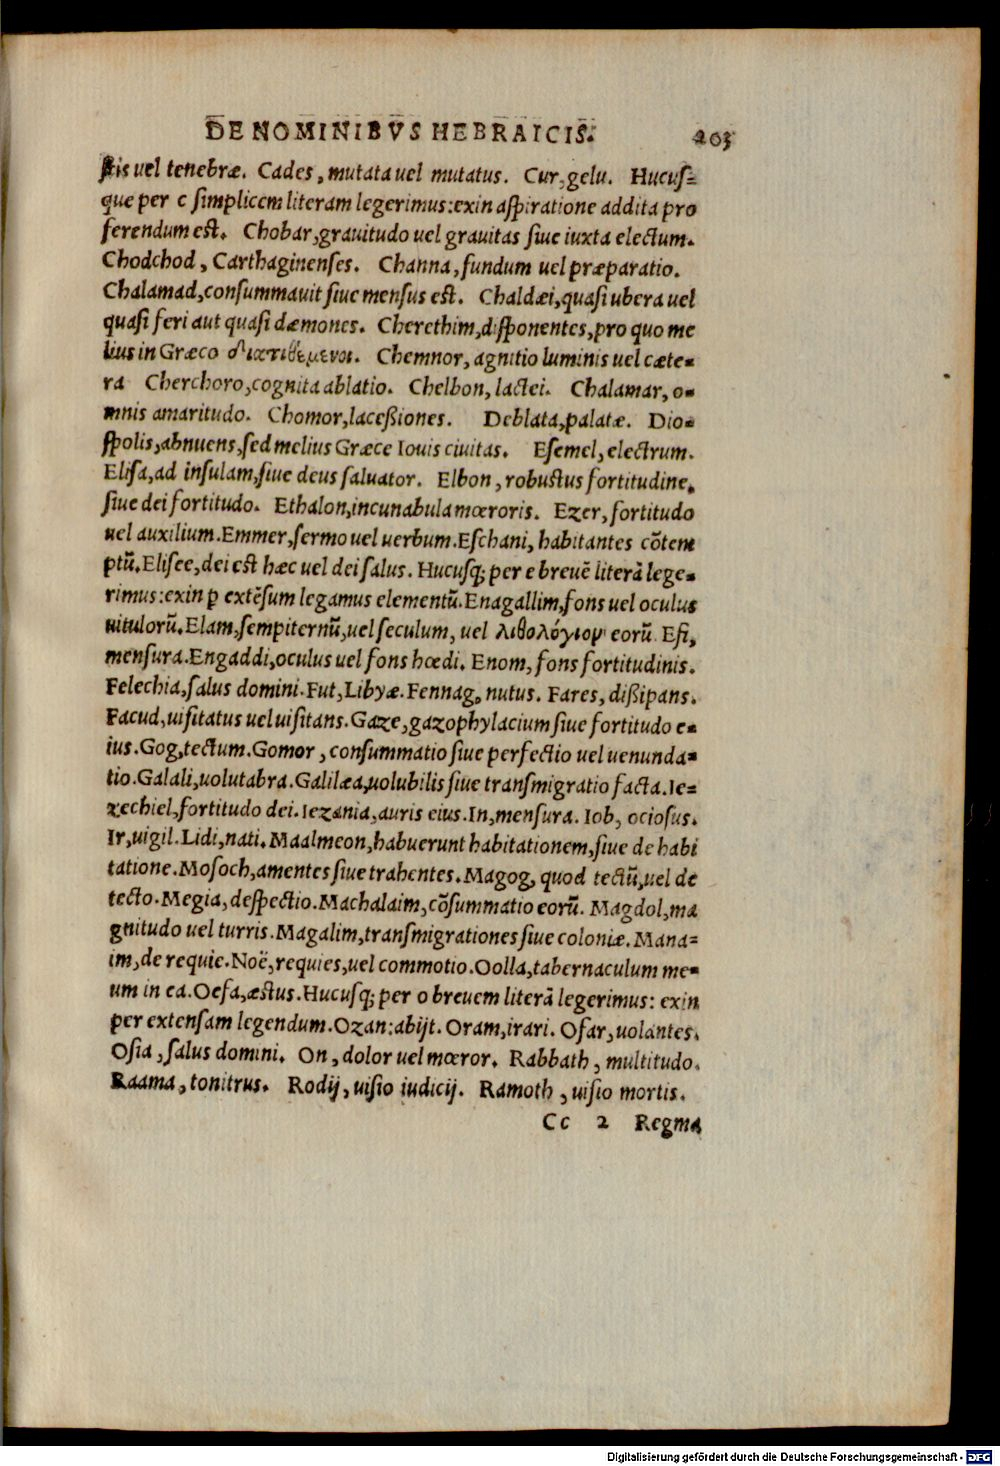 DE NOMINIBVS HEBRAICIS. 203
stis uel tenebræ. Cades, mutata uel mutatus. Cur, gelu. Hucus=
que per c simplicem literam legerimus: exin aspiratione addita pro
ferendum est. Chobar, grauitudo uel grauitas siue iuxta electum.
Chodchod, Carthaginenses. Channa, fundum uel præparatio.
Chalamad, consummauit siue mensus est. Chaldæi, quasi ubera uel
quasi feri aut quasi dæmones. Cherethim, disponentes, pro quo me
lius in Græco διατιθέμενοι. Chemnor, agnitio luminis uel cæte=
ra Cherchoro, cognita ablatio. Chelbon, lactei. Chalamar, o=
mnis amaritudo. Chomor, laceßiones. Deblata, palatæ. Dio=
spolis, abnuens, sed melius Græce Iouis ciuitas. Esemel, electrum.
Elisa, ad insulam, siue deus saluator. Elbon, robustus fortitudine,
siue dei fortitudo. Ethalon, incunabula mœroris. Ezer, fortitudo
uel auxilium. Emmer, sermo uel uerbum. Eschani, habitantes cõtem
ptũ. Elisee, dei est hæc uel dei salus. Hucusq; per e breuẽ literã lege=
rimus: exin ꝑ extẽsum legamus elementũ. Enagallim, fons uel oculus
uitulorũ. Elam, sempiternũ, uel seculum, uel λιθολόγιον eorũ. Efi,
mensura. Engaddi, oculus uel fons hœdi. Enom, fons fortitudinis.
Felechia, salus domini. Fut, Libyæ. Fennag, nutus. Fares, dißipans.
Facud, uisitatus uel uisitans. Gaze, gazophylacium siue fortitudo e=
ius. Gog, tectum. Gomor, consummatio siue perfectio uel uenunda=
tio. Galali, uolutabra. Galilæa, uolubilis siue transmigratio facta. Ie=
zechiel, fortitudo dei. Iezania, auris eius. In, mensura. Iob, ociosus.
Ir, uigil. Lidi, nati. Maalmeon, habuerunt habitationem, siue de habi
tatione. Mosoch, amentes siue trahentes. Magog, quod tectũ, uel de
tecto. Megia, despectio. Machalaim, cõsummatio eorũ. Magdol, ma
gnitudo uel turris. Magalim, transmigrationes siue coloniæ. Mana=
im, de requie. Noë, requies, uel commotio. Oolla, tabernaculum me=
um in ea. Oefa, æstus. Hucusq; per o breuem literã legerimus: exin
per extensam legendum. Ozan: abijt. Oram, irari. Ofar, uolantes.
Osia, salus domini. On, dolor uel mœror. Rabbath, multitudo.
Raama, tonitrus. Rodij, uisio iudicij. Ramoth, uisio mortis.
Cc 2 Regma
Digitalisierung gefördert durch die Deutsche Forschungsgemeinschaft - DFG